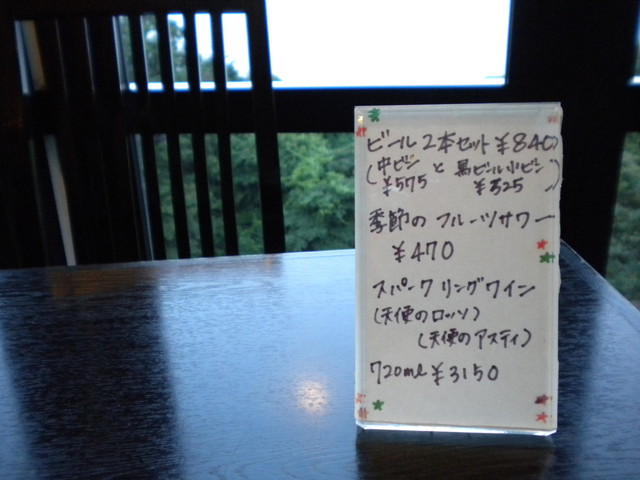 ビール2本セット ¥840
(中ビン と 黒ビール小ビン
¥575 ¥325 )
季節の フルーツサワー
¥470
スパークリングワイン
(天使のロッソ)
(天使のアスティ)
720ml ¥3150